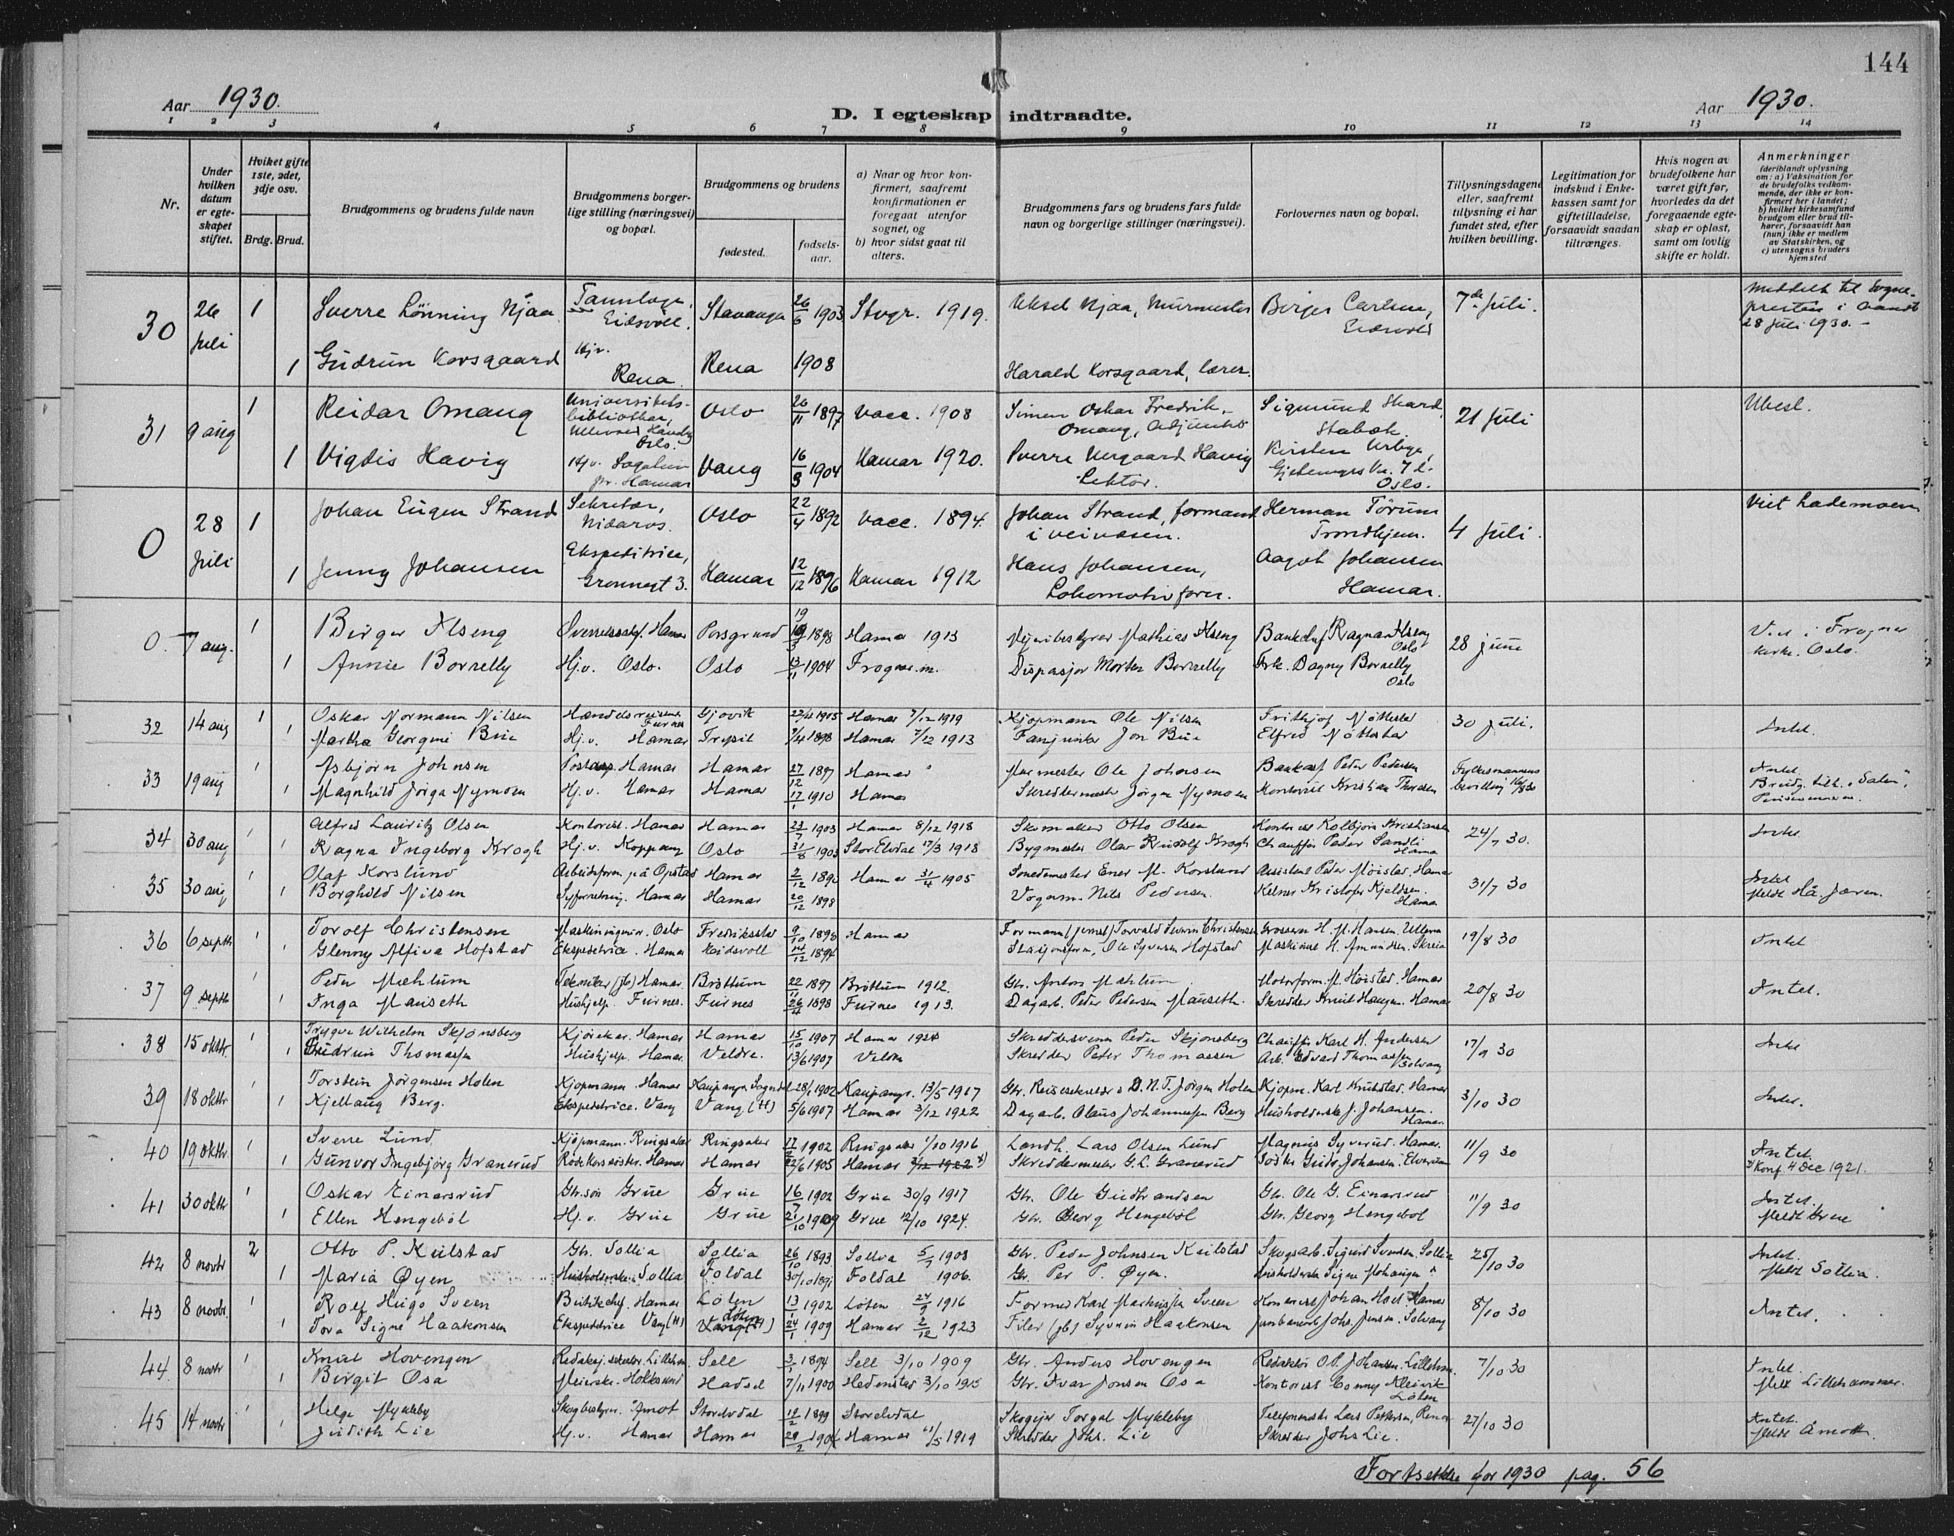 144
Aar 1930.
D. I egteskap indtraadte.
Aar 1930.
1 2 3 4 5 6 7 8 9 10 11 12 13 14
Nr.
Under hvilken datum er egteskapet stiftet.
Hviket gifte 1ste, 2det, 3dje osv.
Brdg. Brud.
Brudgommens og brudens fulde navn
Brudgommens borgerlige stilling (næringsvei) og bopæl.
Brudgommens og brudens
fødested.
fødselsaar.
a) Naar og hvor konfirmert, saafremt konfirmationen er foregaat utenfor sognet, og
b) hvor sidst gaat til alters.
Brudgommens fars og brudens fars fulde navn og borgerlige stillinger (næringsvei).
Forlovernes navn og bopæl.
Tillysningsdagene eller, saafremt tillysning ei har fundet sted, efter hvilken bevilling.
Legitimation for indskud i Enkekassen samt for giftetilladelse, forsaavidt saadan tiltrænges.
Hvis nogen av brudefolkene har været gift før, hvorledes da det foregaaende egteskap er opløst, samt om lovlig skifte er holdt.
Anmerkninger (deriblandt oplysning om: a) Vaksination for de brudefolks vedkommende, der ikke er konfirmert her i landet; b) hvilket kirkesamfund brudgom eller brud tilhører, forsaavidt han (hun) ikke er medlem av Statskirken, og c) utensogns bruders hjemsted
30 26 Juli 1 Sverre Lönning Njaa Eidsvoll. Stavanger 26/6 1903 Stvgr. 1919. Aksel Njaa, Murmester Birger Carlsen, Eidsvold 7de Juli. Meddelt til Sogne-presten i Aamot 28 Juli 1930. -
1 Gudrun Korsgaard Hjv. Rena. Rena 1908 Harald Korsgaard, lærer.
31 9 aug 1 Reidar Omang Universitets-bibliothekar, Oslo. Oslo 26/11 1897 Vacc. 1908 Simen Oskar Fredrik Omang, Adjunkt Sigmund Skard, Stabæk. 21 Juli Ubesl.
1 Vigdis Havig Hjv. pr. Hamar Vang 16/3 1904 Hamar 1920. Sverre Uergaard Havig Lektor. Kirsten Urbye, Oslo.
0 28 Juli 1 Johan Eugen Strand Sekretær, Nidaros. Oslo 22/4 1892 Vacc. 1894. Johan Strand, formand i veivæsen. Herman Törum Trondhjem. 4 Juli. Viet Lademoen
1 Jenny Johansen Ekspeditrice, Grønnegt 3. Hamar 12/12 1896 Hamar 1912 Hans Johansen, Lokomotivfører. Aagot Johansen Hamar.
0. 7 aug. 1 Birger Alseng Hamar Porsgrund 19/3 1898 Hamar 1913 Mathias Alseng Ragnar Alseng Oslo 28 juni Viet i Frogner kirke. Oslo.
1 Annie Borrelly Hj.v. Oslo. Oslo 13/11 1904 Frogner m. Morten Borrelly Frk. Dagny Borrelly Oslo
32 14 aug 1 Oskar Normann Nilsen Handelsreisende Furnes Gjøvik 22/12 1905 Hamar 7/12 1919 Kjøpmann Ole Nilsen Frithjof Nøttestad 30 Juli. Intet.
1 Martha Georgine Bue Hj.v. Hamar Trysil 7/4 1898 Hamar 7/12 1913 Fanejunker Jon Bue Elfred Nøttestad
33 19 aug 1 Asbjørn Johnsen Hamar Hamar 27/12 1897 Hamar Murmester Ole Johnsen Peder Pedersen Fylkesmannens bevilling 16/8 30 Intet.
1 Magnhild Jørga Nymoen Hj.v. Hamar Hamar 17/1 1910 Hamar Skreddermester Jørgen Nymoen Kontorist Kristian Thoresen
34 30 aug 1 Alfred Lauritz Olsen Kontorist. Hamar Hamar 23/7 1903 Hamar 8/12 1918 Skomaker Otto Olsen Kontorist Kolbjørn Kristiansen 24/7 30. Intet
1 Ragna Ingeborg Krogh Hj.v. Koppang Oslo 31/8 1903 Stor Elvdal 17/3 1918 Bygmester Olav Rudolf Krogh Chauffør Peder Sandli Hamar
35 30 aug 1 Olaf Korslund Arbeidsform. på Opstad Hamar 2/12 Hamar 31/4 1905 Smedmester Ener M. Korslund Assistent Peder Moistad. Hamar 31/7 30 Intet Meldt Hå Jæren.
1 Borghild Nilsen Syforretning. Hamar Hamar 20/12 1898 Vognm. Nils Pedersen. Kelner Kristofer Kjeldsen. Hamar
36 6 septbr 1 Torolf Christensen Maskiningeniør. Oslo Fredriksstad 9/10 1898 Hamar Formann Torvald Severin Christensen Grosserer H. M. Hansen. Ullern 19/8 30 Intet
1 Glenny Alfiva Hofstad Ekspeditrice. Hamar Eidsvoll 14/12 1894 Ole Syversen Hofstad Maskinist H. Amundsen. Skreia
37 9 septbr 1 Peder Mæhlum Tekniker (jb) Hamar. Brøttum 22/11 1897 Brøttum 1912. Gbr. Anton Mæhlum Motorform. M. Hoistad. Hamar 20/8 30 Intet.
1 Inga Mauseth Hushjelp. Furnes. Furnes 26/4 1898 Furnes 1913. Dagarb. Peder Pedersen Mauseth. Skredder Knut Haugen. Hamar
38 15 oktbr. 1 Trygve Wilhelm Skjønsberg Kjørekar. Hamar Hamar 15/10 1907 Hamar 1924 Skreddersvenn Peder Skjønsberg Chauffør Karl H. Andersen 17/9 30 Intet
1 Gudrun Thomassen Hushjelp. Hamar. Veldre. 13/6 1907 Veldre Skredder Peter Thomassen Arb. Edvard Thomassen Solvang
39 18 oktbr 1 Torstein Jørgensen Holen Kjøpmann. Hamar Kaupanger Sogndal 28/1 1902 Kaupanger. 13/5 1917 Gbr. Reisesekretær i D.N.T. Jørgen Holen Kjøpm. Karl Knutstad. Hamar 3/10 30 Intet.
1 Kjellaug Berg. Ekspeditrice. Vang Vang (H) 5/6 1907 Hamar 3/12 1922 Dagarb. Olaus Johannessen Berg Husholderske J. Johansen. Hamar.
40 19 oktbr. 1 Sverre Lund. Kjøpmann. Ringsaker Ringsaker 17/2 1902 Ringsaker 1/10 1916 Landh. Lars Olsen Lund Magnus Syverud. Hamar. 11/9 30 Intet.
1 Gunvor Ingebjørg Granerud Røde korssøster. Hamar Hamar 22/6 1905 Hamar 3/12 1922 x) Skreddermester G. L. Granerud Søster Gudr. Johansen. Elverum x) Konf. 4 dec 1921.
41 30 oktbr 1 Oskar Einarsrud Gbr.søn Grue Grue 16/7 1902 Grue 30/9 1917 Gbr. Ole Gudbrandsen Gbr. Ole G. Einarsrud 11/9 30 Intet. Meldt Grue
1 Ellen Hengebøl Hj.v. Grue Grue 21/10 1909 Grue 12/10 1924. Gbr. Georg Hengebøl Gbr. Georg Hengebøl
42 8 novbr 2 Otto P. Kiilstad Gbr. Sollia Sollia 26/10 1893 Sollia 5/7 1908 Gbr. Peder Johnsen Kiilstad Skogsarb. Sigurd Svendsen. Sollia 25/10 30 Intet. Meldt Sollia.
1 Maria Øyen Husholderske Sollia Foldal 30/10 1891 Foldal 1906. Gbr. Per P. Øyen. Husholderske Signe Mohaugen "
43 8 novbr. 1 Rolf Hugo Sveen Butikchef. Hamar Løten 13/1 1902 Løten 24/9 1916 Former Karl Markussen Sveen Kontorist Johan Hoel Hamar 8/10 30 Intet.
1 Tora Signe Haakonsen Ekspeditrice Vang (H) Løten Vang (H) 24/1 1909 Hamar 2/12 1923 Filer (jb) Syverin Haakonsen Johs. Jensen. Solvang
44. 8 novbr 1 Knut Hovengen Redaksj.sekretær. Lilleham. Sell 3/1 1894 Sell 3/10 1909 Gbr. Anders Hovengen Redaktør O. B. Johansen. Lilleham. 7/10 30 Intet. Meldt Lillehammer.
1 Birgit Osa Meierske. Hokksund Hadsel 7/11 1900 Hedenstad 3/10 1915 Gbr. Ivar Jonsen Osa Kontorist Conny Kleivik Løten
45 14 novbr 1 Helge Mykleby Skogbestyrer. Åmot Storelvdal 12/2 1899 Storelvdal Skogeier Torgal Mykleby Telefonmester Lars Pettersen, Rena 27/10 30 Intet. Meldt Åmot.
1 Judith Lie Hj.v. Hamar Hamar 29/2 1904 Hamar 11/5 1919 Skredder Johs. Lie Skredder Johs Lie.
Fortsettelse for 1930 pag. 56